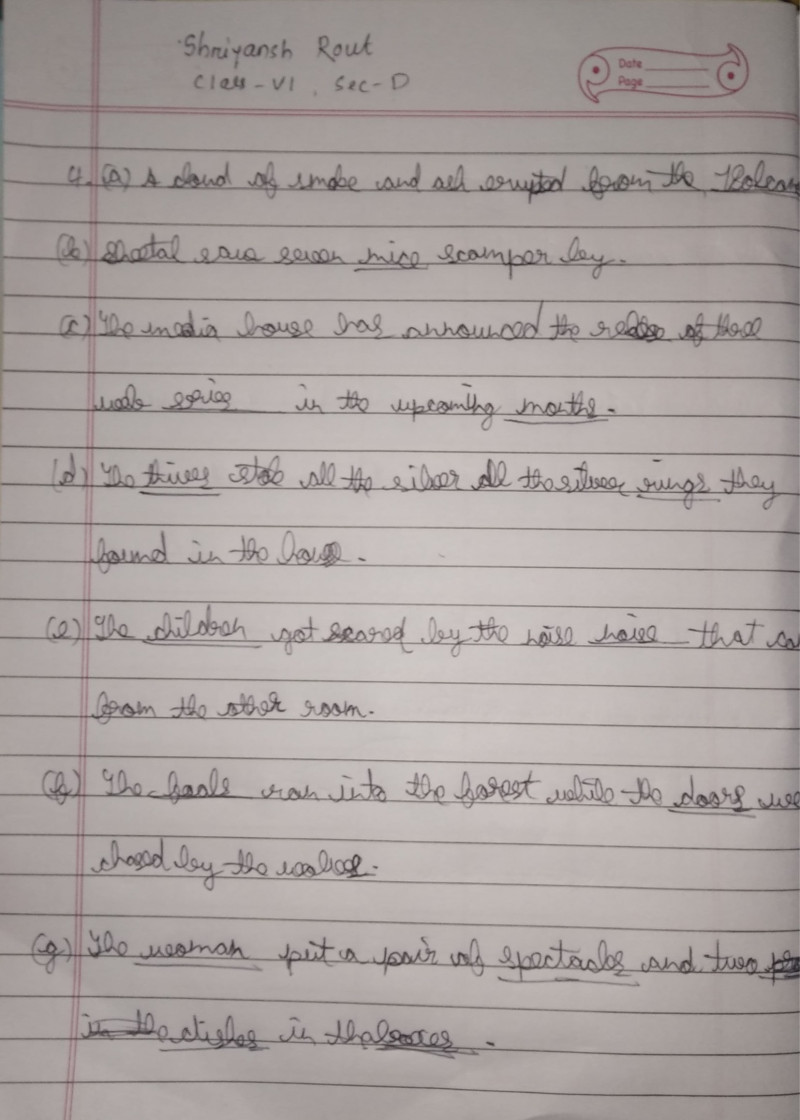 Shriyansh Rout
Class - VI . Sec - D
Date
Page
4. (a) A cloud of smoke and ash erupted from the
(b) Sheetal saw seven mice scamper by.
(c) The media house has announced the release of three
web series in the upcoming months.
(d) The thives stole all the silver all the silver rings they
found in the house.
(e) The children got scared by the noise noise that
from the other room.
(f) The foals ran into the forest while the
chased by the wolves.
(g) The woman put a pair of spectacles and two
in the dishes in the boxes.